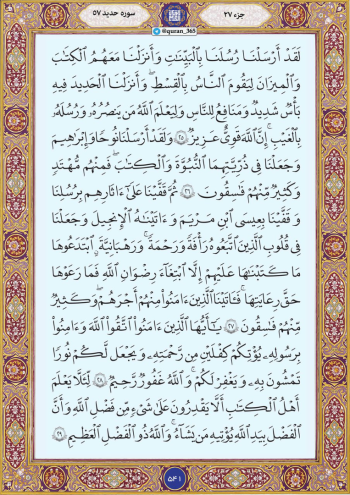 جزء ۲۷
@quran_365
سوره حدید ۵۷
لَقَدْ أَرْسَلْنَا رُسُلَنَا بِالْبَيِّنَاتِ وَأَنزَلْنَا مَعَهُمُ الْكِتَابَ
وَالْمِيزَانَ لِيَقُومَ النَّاسُ بِالْقِسْطِ ۖ وَأَنزَلْنَا الْحَدِيدَ فِيهِ
بَأْسٌ شَدِيدٌ وَمَنَافِعُ لِلنَّاسِ وَلِيَعْلَمَ اللَّهُ مَن يَنصُرُهُ وَرُسُلَهُ
بِالْغَيْبِ ۚ إِنَّ اللَّهَ قَوِيٌّ عَزِيزٌ ٢٥ وَلَقَدْ أَرْسَلْنَا نُوحًا وَإِبْرَاهِيمَ
وَجَعَلْنَا فِي ذُرِّيَّتِهِمَا النُّبُوَّةَ وَالْكِتَابَ ۖ فَمِنْهُم مُّهْتَدٍ
وَكَثِيرٌ مِّنْهُمْ فَاسِقُونَ ٢٦ ثُمَّ قَفَّيْنَا عَلَىٰ آثَارِهِم بِرُسُلِنَا
وَقَفَّيْنَا بِعِيسَى ابْنِ مَرْيَمَ وَآتَيْنَاهُ الْإِنجِيلَ وَجَعَلْنَا
فِي قُلُوبِ الَّذِينَ اتَّبَعُوهُ رَأْفَةً وَرَحْمَةً ۚ وَرَهْبَانِيَّةً ابْتَدَعُوهَا
مَا كَتَبْنَاهَا عَلَيْهِمْ إِلَّا ابْتِغَاءَ رِضْوَانِ اللَّهِ فَمَا رَعَوْهَا
حَقَّ رِعَايَتِهَا ۖ فَآتَيْنَا الَّذِينَ آمَنُوا مِنْهُمْ أَجْرَهُمْ ۖ وَكَثِيرٌ
مِّنْهُمْ فَاسِقُونَ ٢٧ يَا أَيُّهَا الَّذِينَ آمَنُوا اتَّقُوا اللَّهَ وَآمِنُوا
بِرَسُولِهِ يُؤْتِكُمْ كِفْلَيْنِ مِن رَّحْمَتِهِ وَيَجْعَل لَّكُمْ نُورًا
تَمْشُونَ بِهِ وَيَغْفِرْ لَكُمْ ۚ وَاللَّهُ غَفُورٌ رَّحِيمٌ ٢٨ لِّئَلَّا يَعْلَمَ
أَهْلُ الْكِتَابِ أَلَّا يَقْدِرُونَ عَلَىٰ شَيْءٍ مِّن فَضْلِ اللَّهِ ۙ وَأَنَّ
الْفَضْلَ بِيَدِ اللَّهِ يُؤْتِيهِ مَن يَشَاءُ ۚ وَاللَّهُ ذُو الْفَضْلِ الْعَظِيمِ ٢٩
۵۴۱